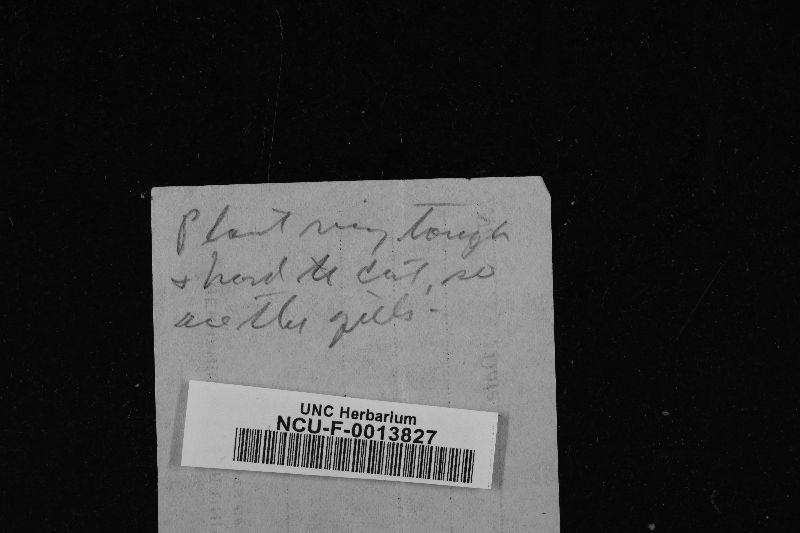 Plant very tough
& hard to cut, so
are the gills.
UNC Herbarium
NCU-F-0013827